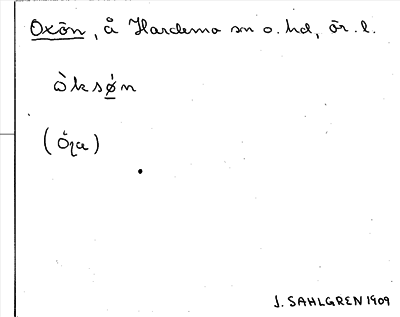 Oxön, å Hardemo sn o. hd, ör. l.
òksø̀n
(Öɳa)
J. SAHLGREN 1909